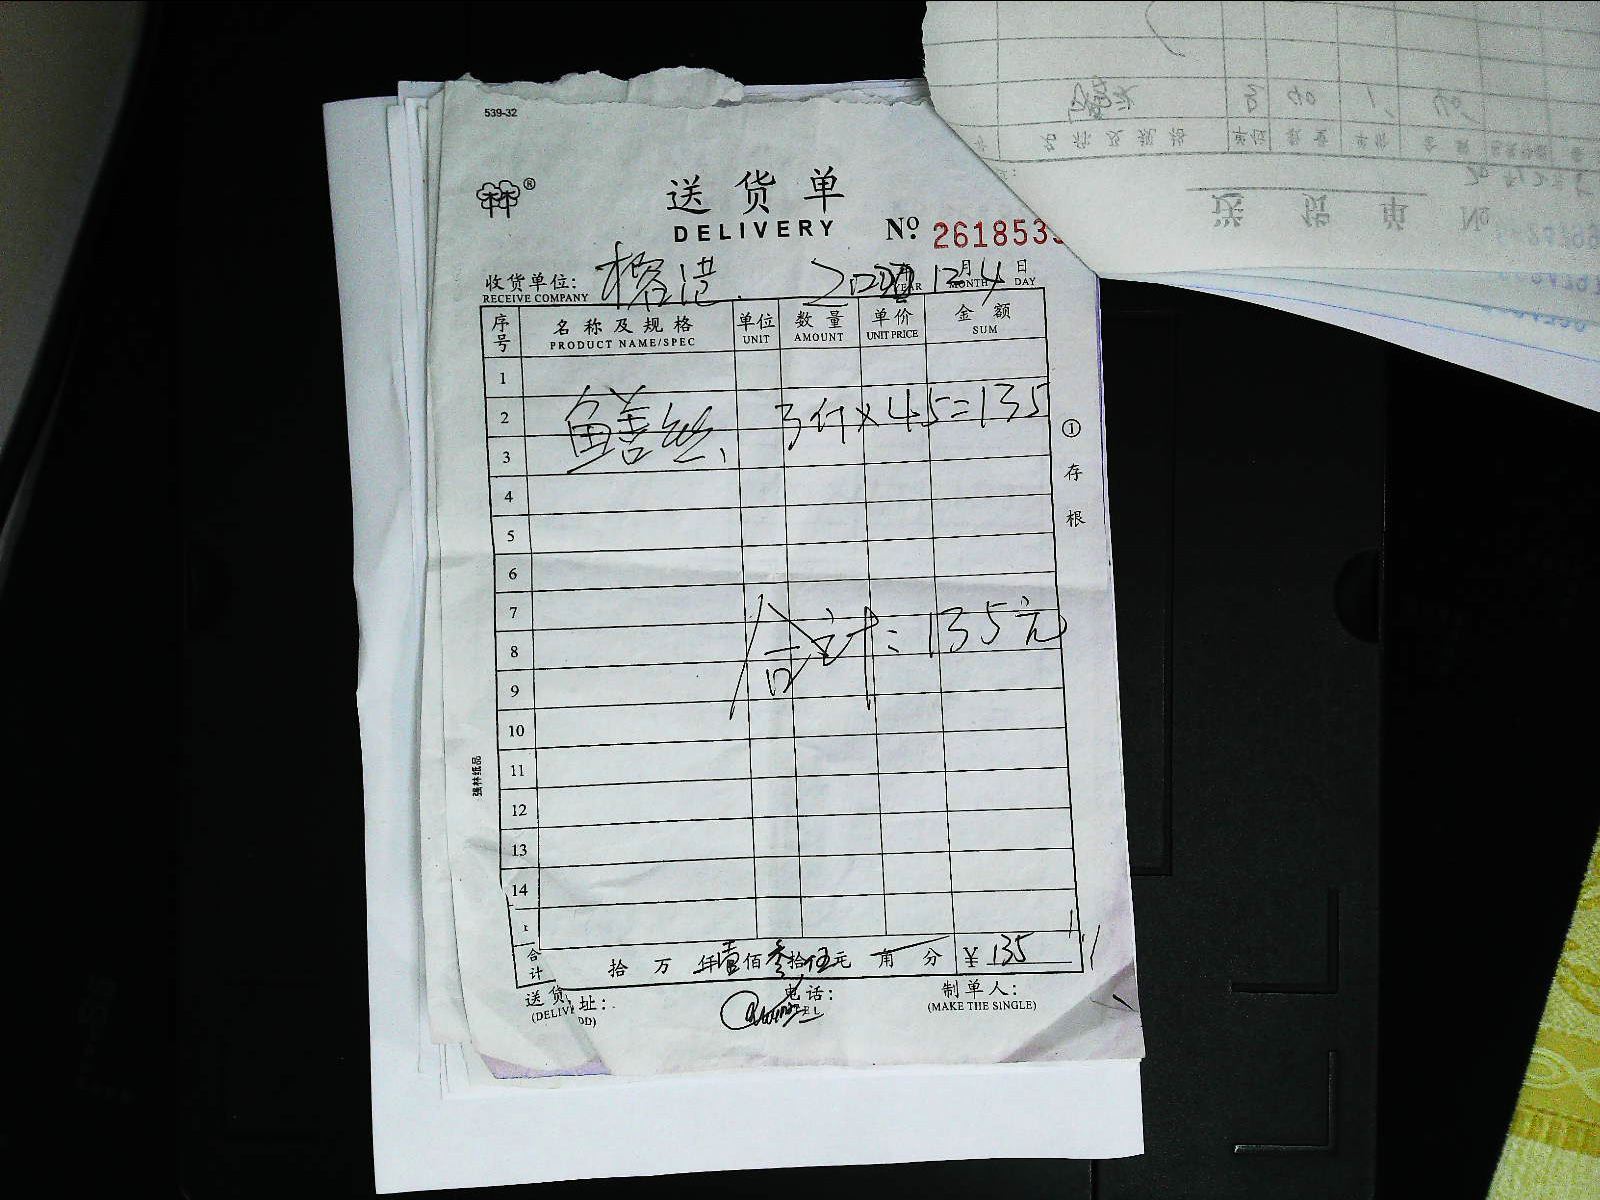 539-32
送货单
DELIVERY
№ 261853
收货单位: 榕港 2022年 12月 4日
RECEIVE COMPANY YEAR MONTH DAY
序号 名称及规格 单位 数量 单价 金额
PRODUCT NAME/SPEC UNIT AMOUNT UNIT PRICE SUM
1
2
鳝丝 3斤×45=135
3
4
5
6
7
合计: 135元
8
9
10
11
12
13
14
合计 拾 万 仟 壹佰 叁拾 伍元 角 分 ¥ 135
送货 址: 电话: 制单人:
(DELIV DD) TEL (MAKE THE SINGLE)
① 存根
强林纸品
送货单 №
名称及规格 单位 数量 单价 金额
40